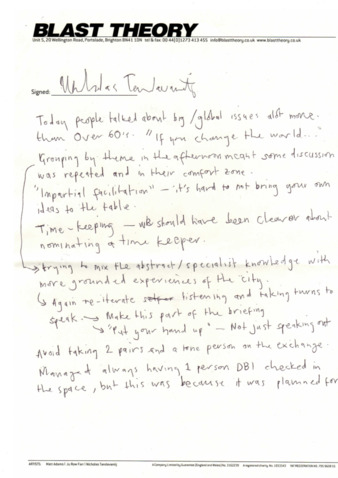 BLAST THEORY
Unit 5, 20 Wellington Road, Portslade, Brighton BN41 1DN tel & fax 00 44(0)1273 413 455 info@blasttheory.co.uk www.blasttheory.co.uk
Signed: Nicholas Tandavanitj
Today people talked about big/global issues alot more
than Over 60's. "If you change the world..."
Grouping by theme in the afternoon meant some discussion
was repeated and in their comfort zone.
"Impartial facilitation" – it's hard to not bring your own
ideas to the table.
Time-keeping – we should have been clearer about
nominating a time keeper.
Trying to mix the abstract/specialist knowledge with
more grounded experiences of the city.
Again re-iterate listening and taking turns to
speak. → Make this part of the briefing
→ "Put your hand up" – Not just speaking out
Avoid taking 2 pairs and a lone person on the exchange.
Managed always having 1 person DBI checked in
the space, but this was because it was planned for
ARTISTS Matt Adams | Ju Row Farr | Nicholas Tandavanitj